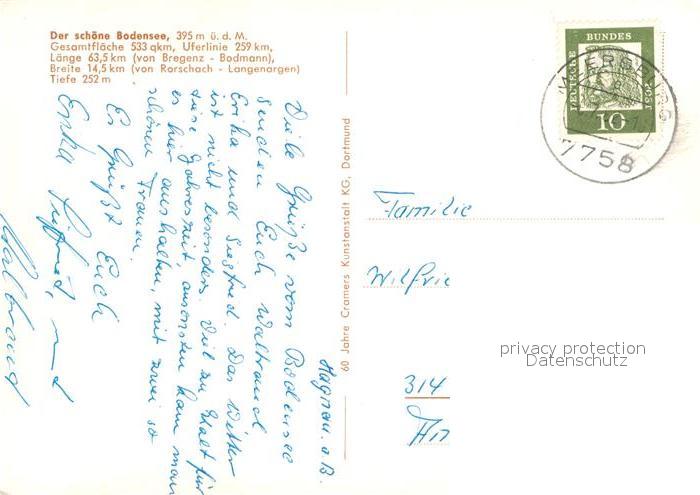 Der schöne Bodensee, 395 m ü. d. M.
Gesamtfläche 533 qkm, Uferlinie 259 km,
Länge 63,5 km (von Bregenz - Bodmann),
Breite 14,5 km (von Rorschach - Langenargen)
Tiefe 252 m
Hagnau a. B.
Viele Grüße vom Bodensee
senden Euch Waltraud
Erika und Siegfried. Das Wetter
ist nicht besonders. Viel zu kalt für
diese Jahreszeit, ansonsten kann man
es hier aushalten, mit zwei so
schönen Frauen.
Es Grüßt Euch
Erika, Siegfried, und
Waltraud
60 Jahre Cramers Kunstanstalt KG, Dortmund
DEUTSCHE
BUNDES
POST
10
MEERSBURG
7758
Familie
Wilfrie
314
privacy protection
Datenschutz